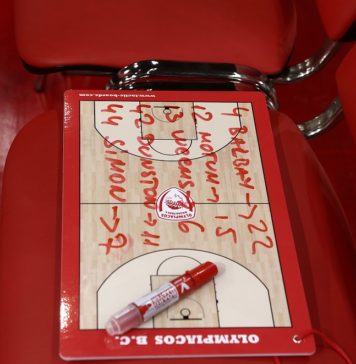 www.tactic-boards.com
4 BALBAY → 22
12 MOTUM → 15
13 → 6
42 DUNSTON → 11
44 SIMON → 7
OLYMPIACOS
OLYMPIACOS B.C.